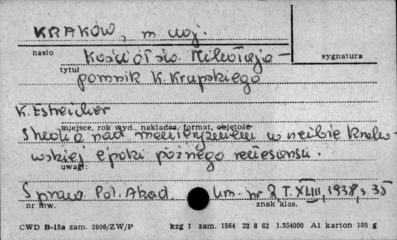 KRAKÓW, m woj.
hasło
Kościół św. Mikołaja –
sygnatura
tytuł
pomnik K. Krupskiego
K. Estreicher
miejsce, rok wyd., nakładca, format, objętość
Studia nad manieryzmem w rzeźbie krako-
wskiej epoki późnego renesansu.
uwagi
Spraw. Pol. Akad. Um. nr 2 T. XLIII, 1938, s. 35
nr inw.
znak klas.
CWD B-15a zam. 2006/ZW/P
kzg 1 zam. 1564 22 8 62 1.554000 A1 karton 180 g